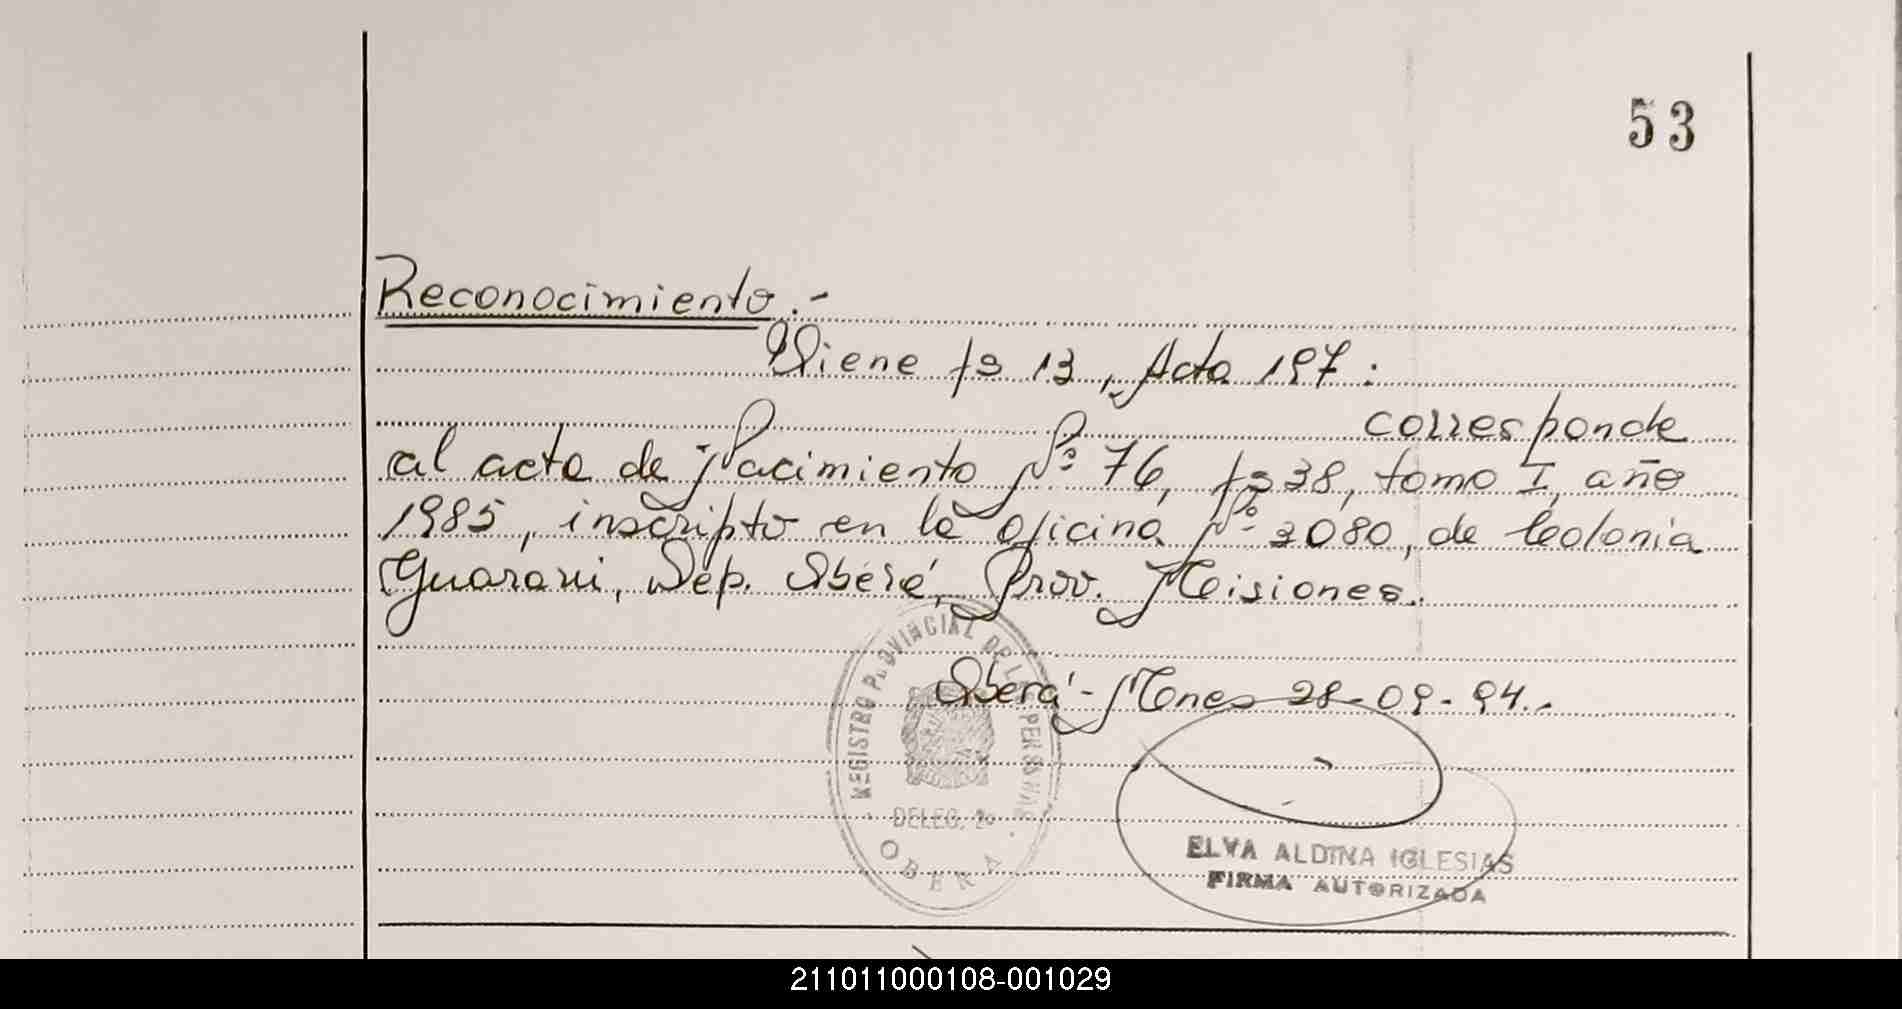 53
Reconocimiento.-
Viene fs 13, Acta 197:
corresponde
al acta de Nacimiento Nº 76, fs 38, tomo I, año
1985, inscripto en la oficina Nº 2080, de Colonia
Guarani, Dep. Oberá, Prov. Misiones.
Oberá-Mnes 28-09-94.-
REGISTRO PROVINCIAL DE LAS PERSONAS
DELEG. 2º
OBERA
ELVA ALDINA IGLESIAS
FIRMA AUTORIZADA
211011000108-001029